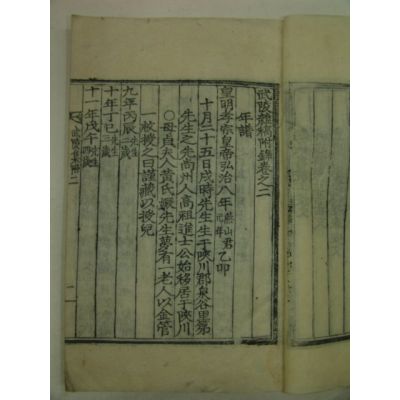 武陵雜稿附錄卷之二
年譜
皇明孝宗皇帝弘治八年 燕山君元年 乙卯
十月二十五日戌時先生生于陜川郡泉谷里第
先生之先尚州人高祖進士公始移居于陜川
○母貞夫人黃氏娠先生夢有一老人以金管
一枚授之曰謹藏以授兒
九年丙辰 先生二歲
十年丁巳 先生三歲
十一年戊午 先生四歲